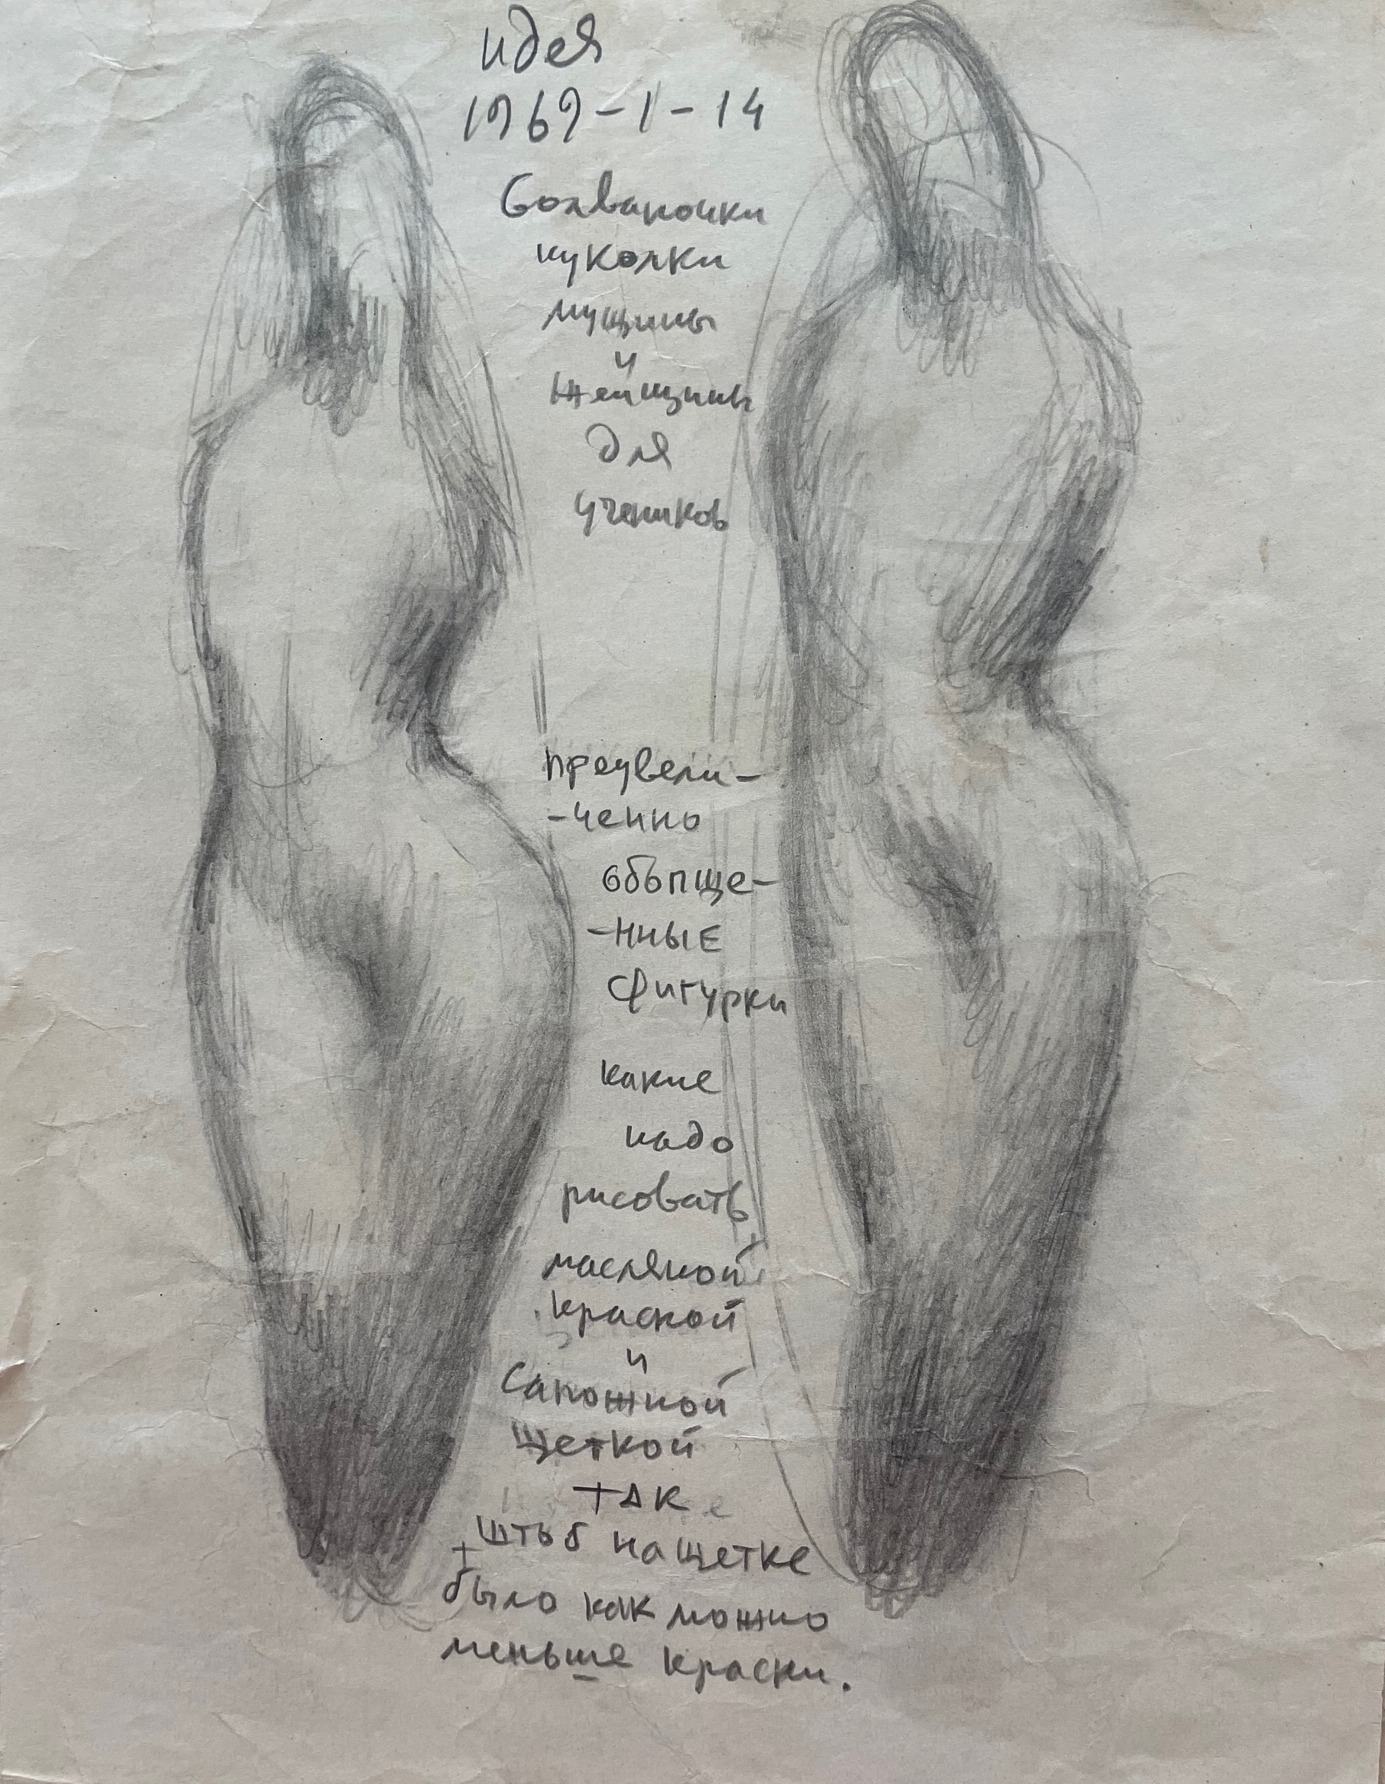 идея
1969-1-14
болваночки
куколки
мущины
и
женщины
для
учеников
преувели-
-ченно
обьпще-
-нные
фигурки
какие
надо
рисовать
масляной
краской
и
сапожной
щеткой
так
штьб на щетке
было как можно
меньше краски.